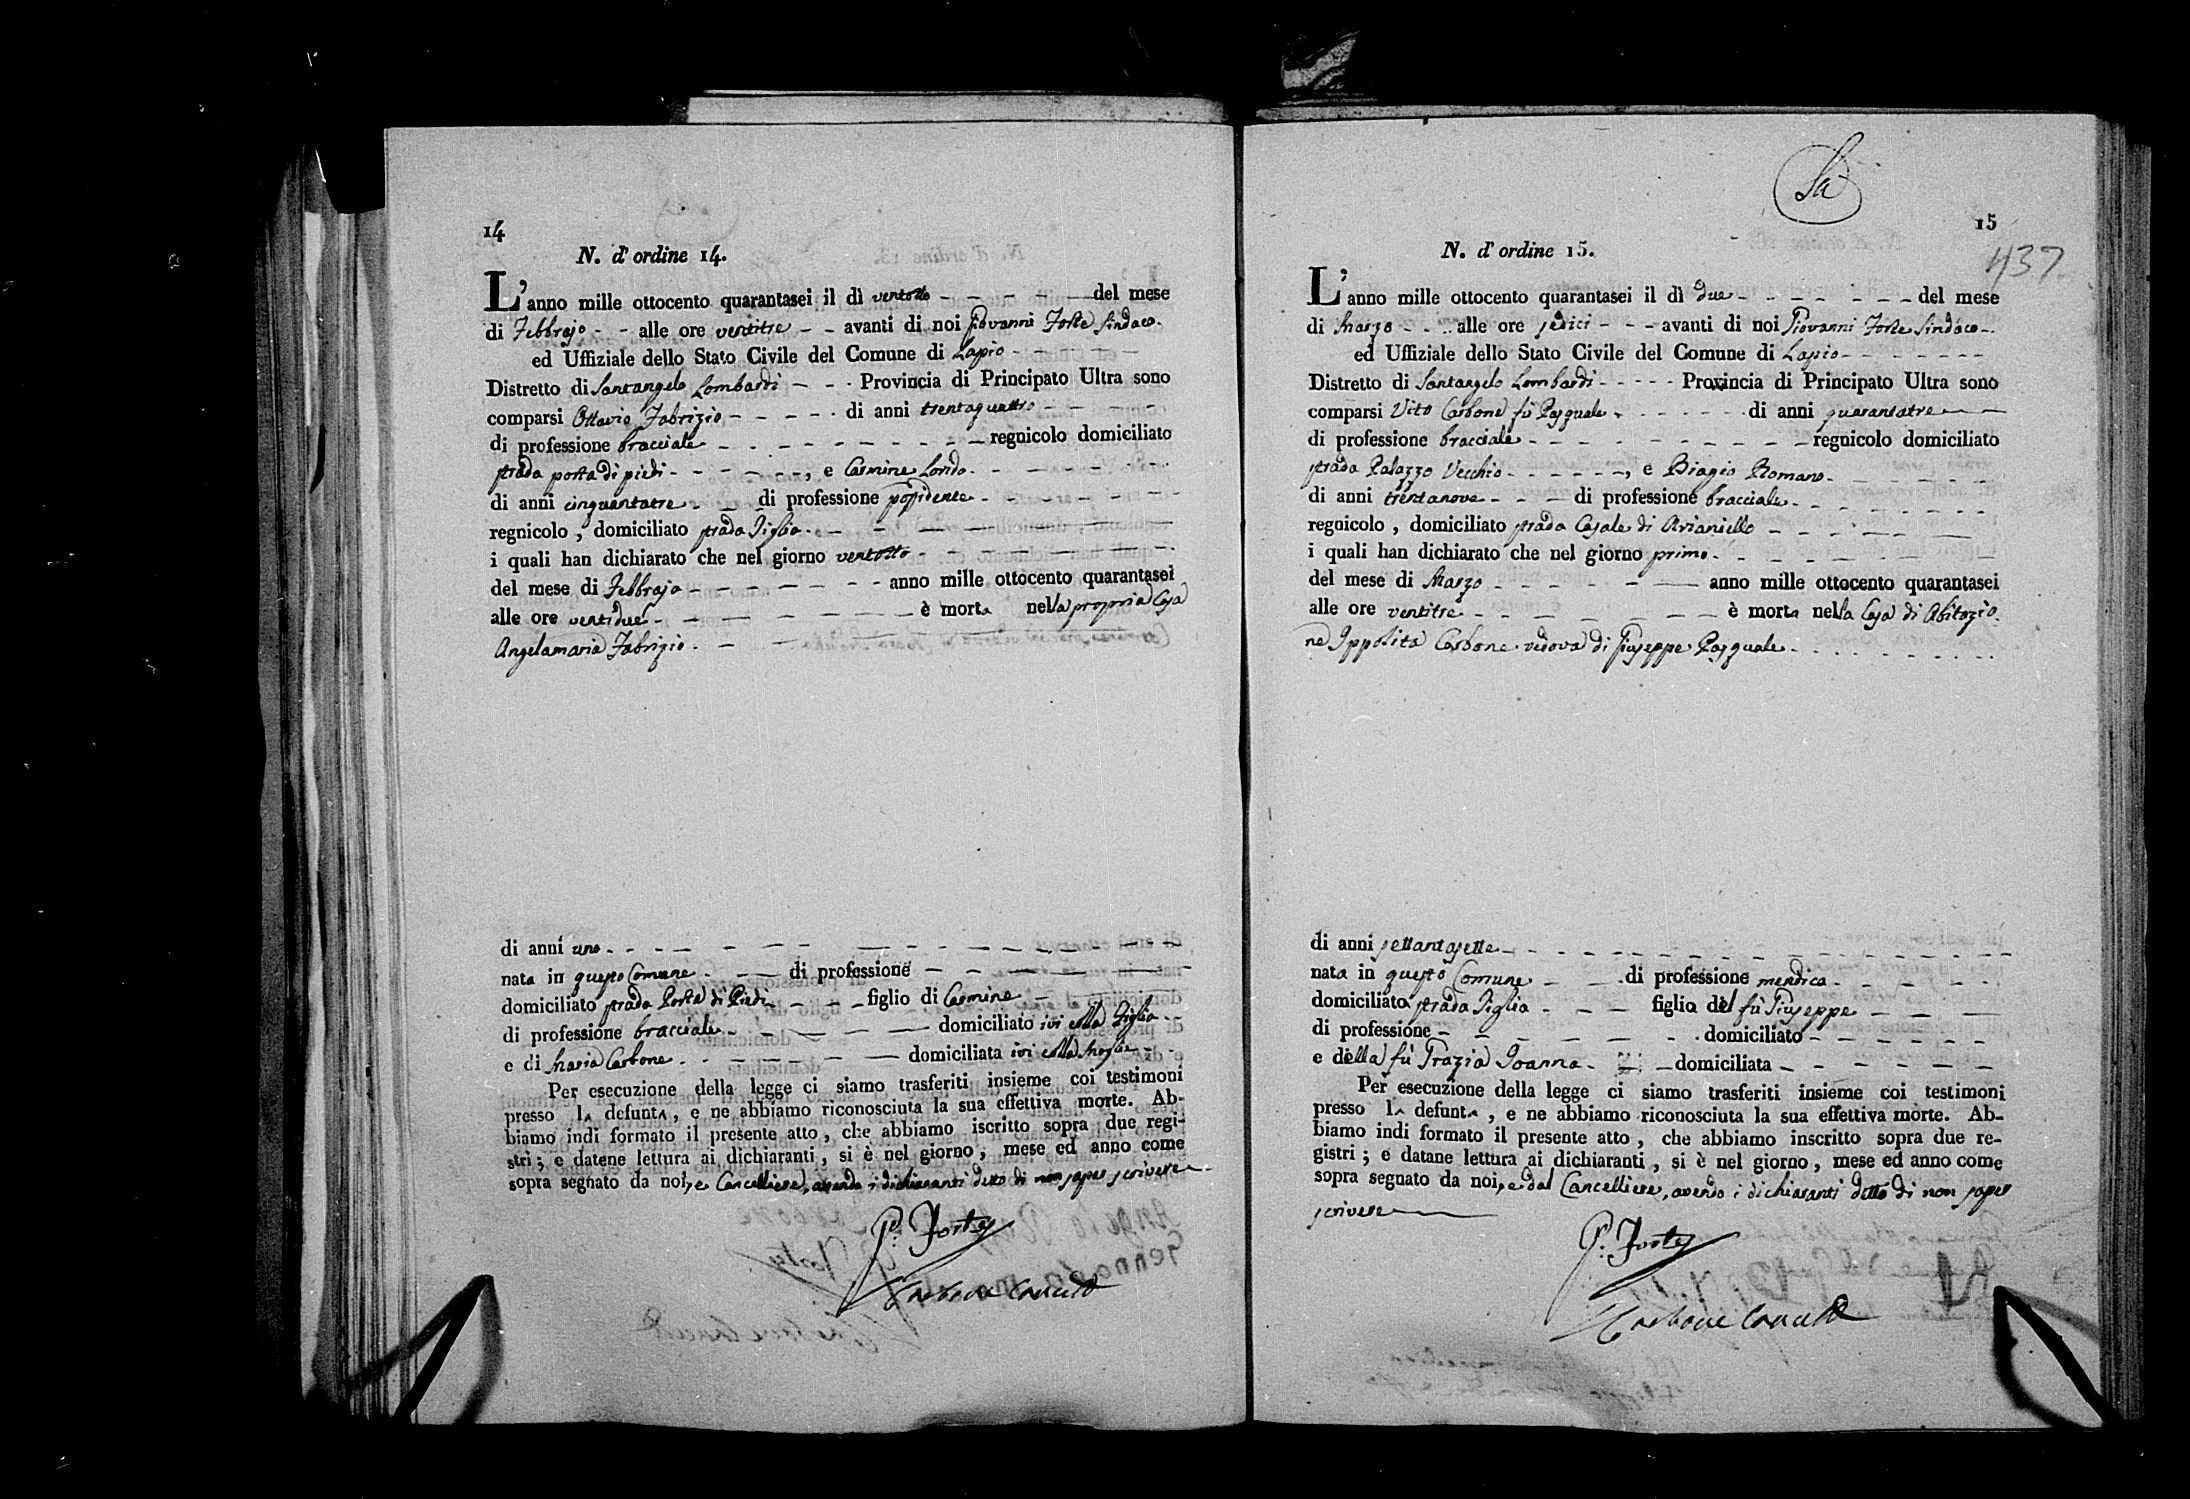 14
N. d'ordine 14.
L'anno mille ottocento quarantasei il dì ventotto del mese
di Febbrajo alle ore ventitre avanti di noi Giovanni Forte Sindaco
ed Uffiziale dello Stato Civile del Comune di Lapio
Distretto di Santangelo Lombardi Provincia di Principato Ultra sono
comparsi Ottavio Fabrizio di anni trentaquattro
di professione bracciale regnicolo domiciliato
strada porta di piedi, e Carmine Lorido
di anni cinquantatre di professione possidente
regnicolo, domiciliato strada Figlio
i quali han dichiarato che nel giorno ventotto
del mese di Febbrajo anno mille ottocento quarantasei
alle ore ventidue è morta nella propria Casa
Angelamaria Fabrizio
di anni uno
nata in questo Comune di professione
domiciliato strada Porta di Piedi figlio di Carmine
di professione bracciale domiciliato ivi colla Figlia
e di Maria Carbone domiciliata ivi colla Moglie
Per esecuzione della legge ci siamo trasferiti insieme coi testimoni
presso la defunta, e ne abbiamo riconosciuta la sua effettiva morte. Ab-
biamo indi formato il presente atto, che abbiamo iscritto sopra due regi-
stri; e datene lettura ai dichiaranti, si è nel giorno, mese ed anno come
sopra segnato da noi, e Cancelliere, avendo i dichiaranti detto di non saper scrivere
G. Forte
Carbone Canc
15
437
N. d'ordine 15.
L'anno mille ottocento quarantasei il dì due del mese
di Marzo alle ore sedici avanti di noi Giovanni Forte Sindaco
ed Uffiziale dello Stato Civile del Comune di Lapio
Distretto di Santangelo Lombardi Provincia di Principato Ultra sono
comparsi Vito Carbone fù Pasquale di anni quarantatre
di professione bracciale regnicolo domiciliato
strada Palazzo Vecchio, e Biagio Romano
di anni trentanove di professione bracciale
regnicolo, domiciliato strada Casale di Arianiello
i quali han dichiarato che nel giorno primo
del mese di Marzo anno mille ottocento quarantasei
alle ore ventitre è morta nella Casa di Abitazio
ne Ippolita Carbone vedova di Giuseppe Pasquale
di anni settantasette
nata in questo Comune di professione mendica
domiciliato strada Figlia figlio del fù Giuseppe
di professione domiciliato
e della fù Grazia Ioanna domiciliata
Per esecuzione della legge ci siamo trasferiti insieme coi testimoni
presso la defunta, e ne abbiamo riconosciuta la sua effettiva morte. Ab-
biamo indi formato il presente atto, che abbiamo inscritto sopra due re-
gistri; e datane lettura ai dichiaranti, si è nel giorno, mese ed anno come
sopra segnato da noi, e dal Cancelliere, avendo i dichiaranti detto di non saper
scrivere
G. Forte
Carbone Canc